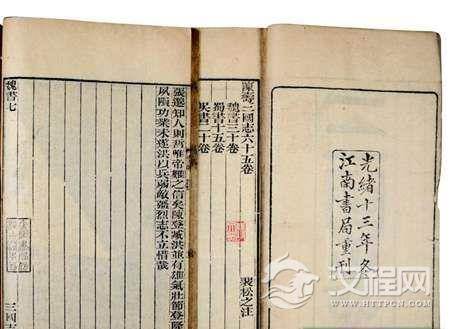 光緒十三年冬
江南書局重刊
陳壽三國志六十五卷
魏書三十卷
蜀書十五卷
吳書二十卷
裴松之注
張邈知人則哲唯帝難之信矣陳登臧洪並有雄氣壯節登降
夙隕功業未遂洪以兵弱敵彊烈志不立惜哉
魏書七
三國志
汉程网
HTTPCN.COM